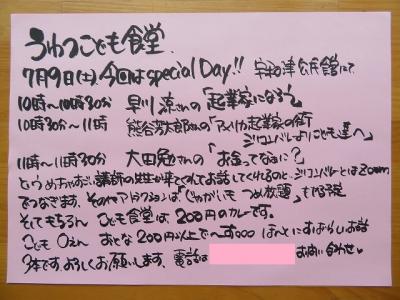 うわつこども食堂、
7月9日(土)今回はspecial Day!! 宇和津公民館にて
10時〜10時30分 早川 涼さんの「起業家になろう」
10時30分〜11時 熊谷芳太郎さんの「アメリカ起業家の街 シリコンバレーよりこども達へ」
11時〜11時30分 大田勉さんの「お金ってなぁに?」
というめちゃめちゃすごい講師の先生が来てくれてお話してくれるのと、シリコンバレーとはZoom
でつなぎます、そのアトラクションは「じゃがいもつめ放題」もする予定
そしてもちろん こども食堂は200円のカレーです。
こども 0えん おとな 200円以上で ほんとにすばらしいお話
3本です。よろしくお願いします、電話は お問い合わせ